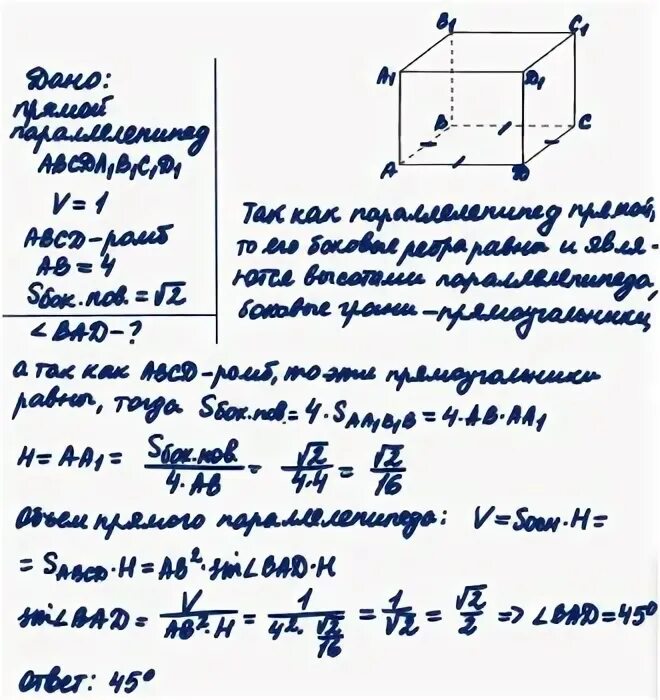 Дано:
прямой
параллелепипед
ABCDA₁B₁C₁D₁
V = 1
ABCD - ромб
AB = 4
Sбок.пов. = √2
∠BAD - ?
B₁
C₁
A₁
D₁
B
C
A
D
Так как параллелепипед прямой,
то его боковые ребра равны и явля-
ются высотами параллелепипеда,
боковые грани - прямоугольники
а так как ABCD - ромб, то эти прямоугольники
равны, тогда Sбок.пов. = 4 · S_AA₁B₁B = 4 · AB · AA₁
H = AA₁ = Sбок.пов. / 4·AB = √2 / 4·4 = √2 / 16
Объем прямого параллелепипеда: V = Sосн · H =
= S_ABCD · H = AB² · sin∠BAD · H
sin∠BAD = V / AB²·H = 1 / 4² · √2/16 = 1/√2 = √2/2 => ∠BAD = 45°
Ответ: 45°